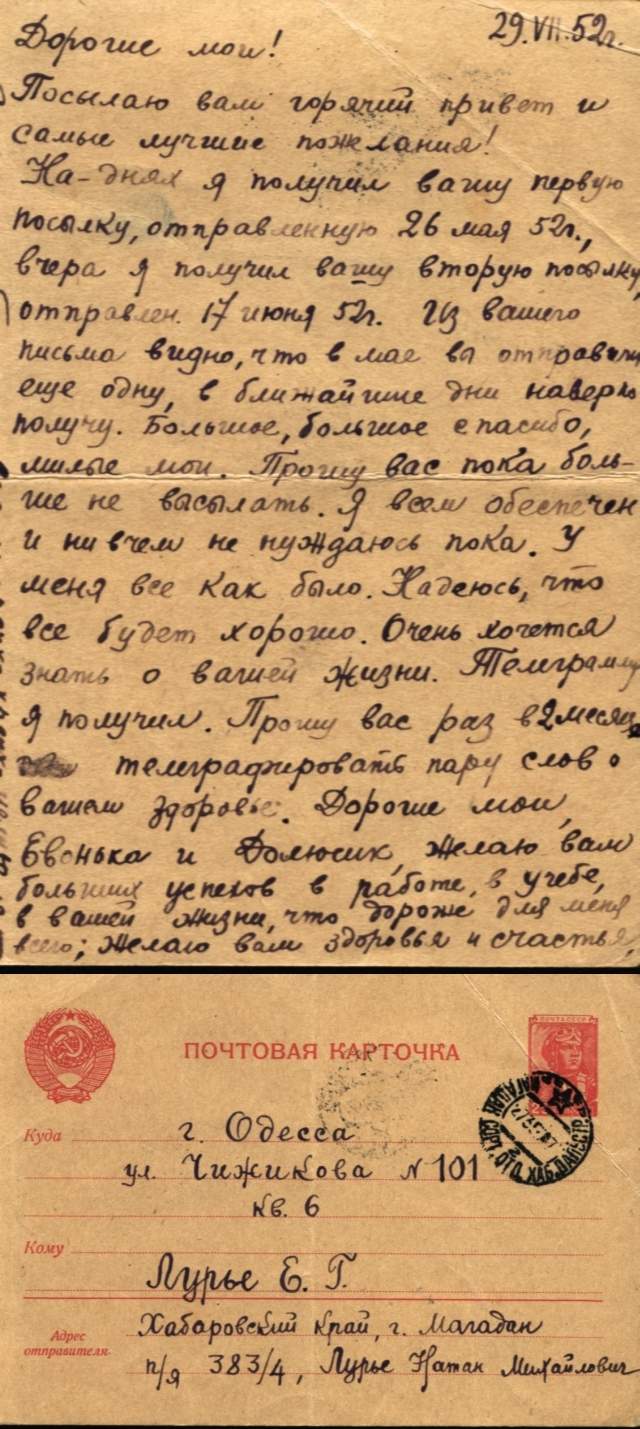 29.VII.52г.
Дорогие мои!
Посылаю вам горячий привет и
самые лучшие пожелания!
На-днях я получил вашу первую
посылку, отправленную 26 мая 52г.,
вчера я получил вашу вторую посылку,
отправлен. 17 июня 52г. Из вашего
письма видно, что в мае вы отправили
еще одну, в ближайшие дни наверно
получу. Большое, большое спасибо,
милые мои. Прошу вас пока боль-
ше не высылать. Я всем обеспечен
и ни в чем не нуждаюсь пока. У
меня все как было. Надеюсь, что
все будет хорошо. Очень хочется
знать о вашей жизни. Телеграмму
я получил. Прошу вас раз в 2 месяца
телеграфировать пару слов о
вашем здоровье. Дорогие мои,
Евонька и Долюсик, желаю вам
больших успехов в работе, в учебе,
в вашей жизни, что дороже для меня
всего; желаю вам здоровья и счастья,
ПОЧТА СССР
ПОЧТОВАЯ КАРТОЧКА
МАГАДАН
Куда г. Одесса
ул. Чижикова N 101
кв. 6
Кому
Лурье Е. Г.
Адрес отправителя
Хабаровский край, г. Магадан
п/я 383/4, Лурье Натан Михайлович